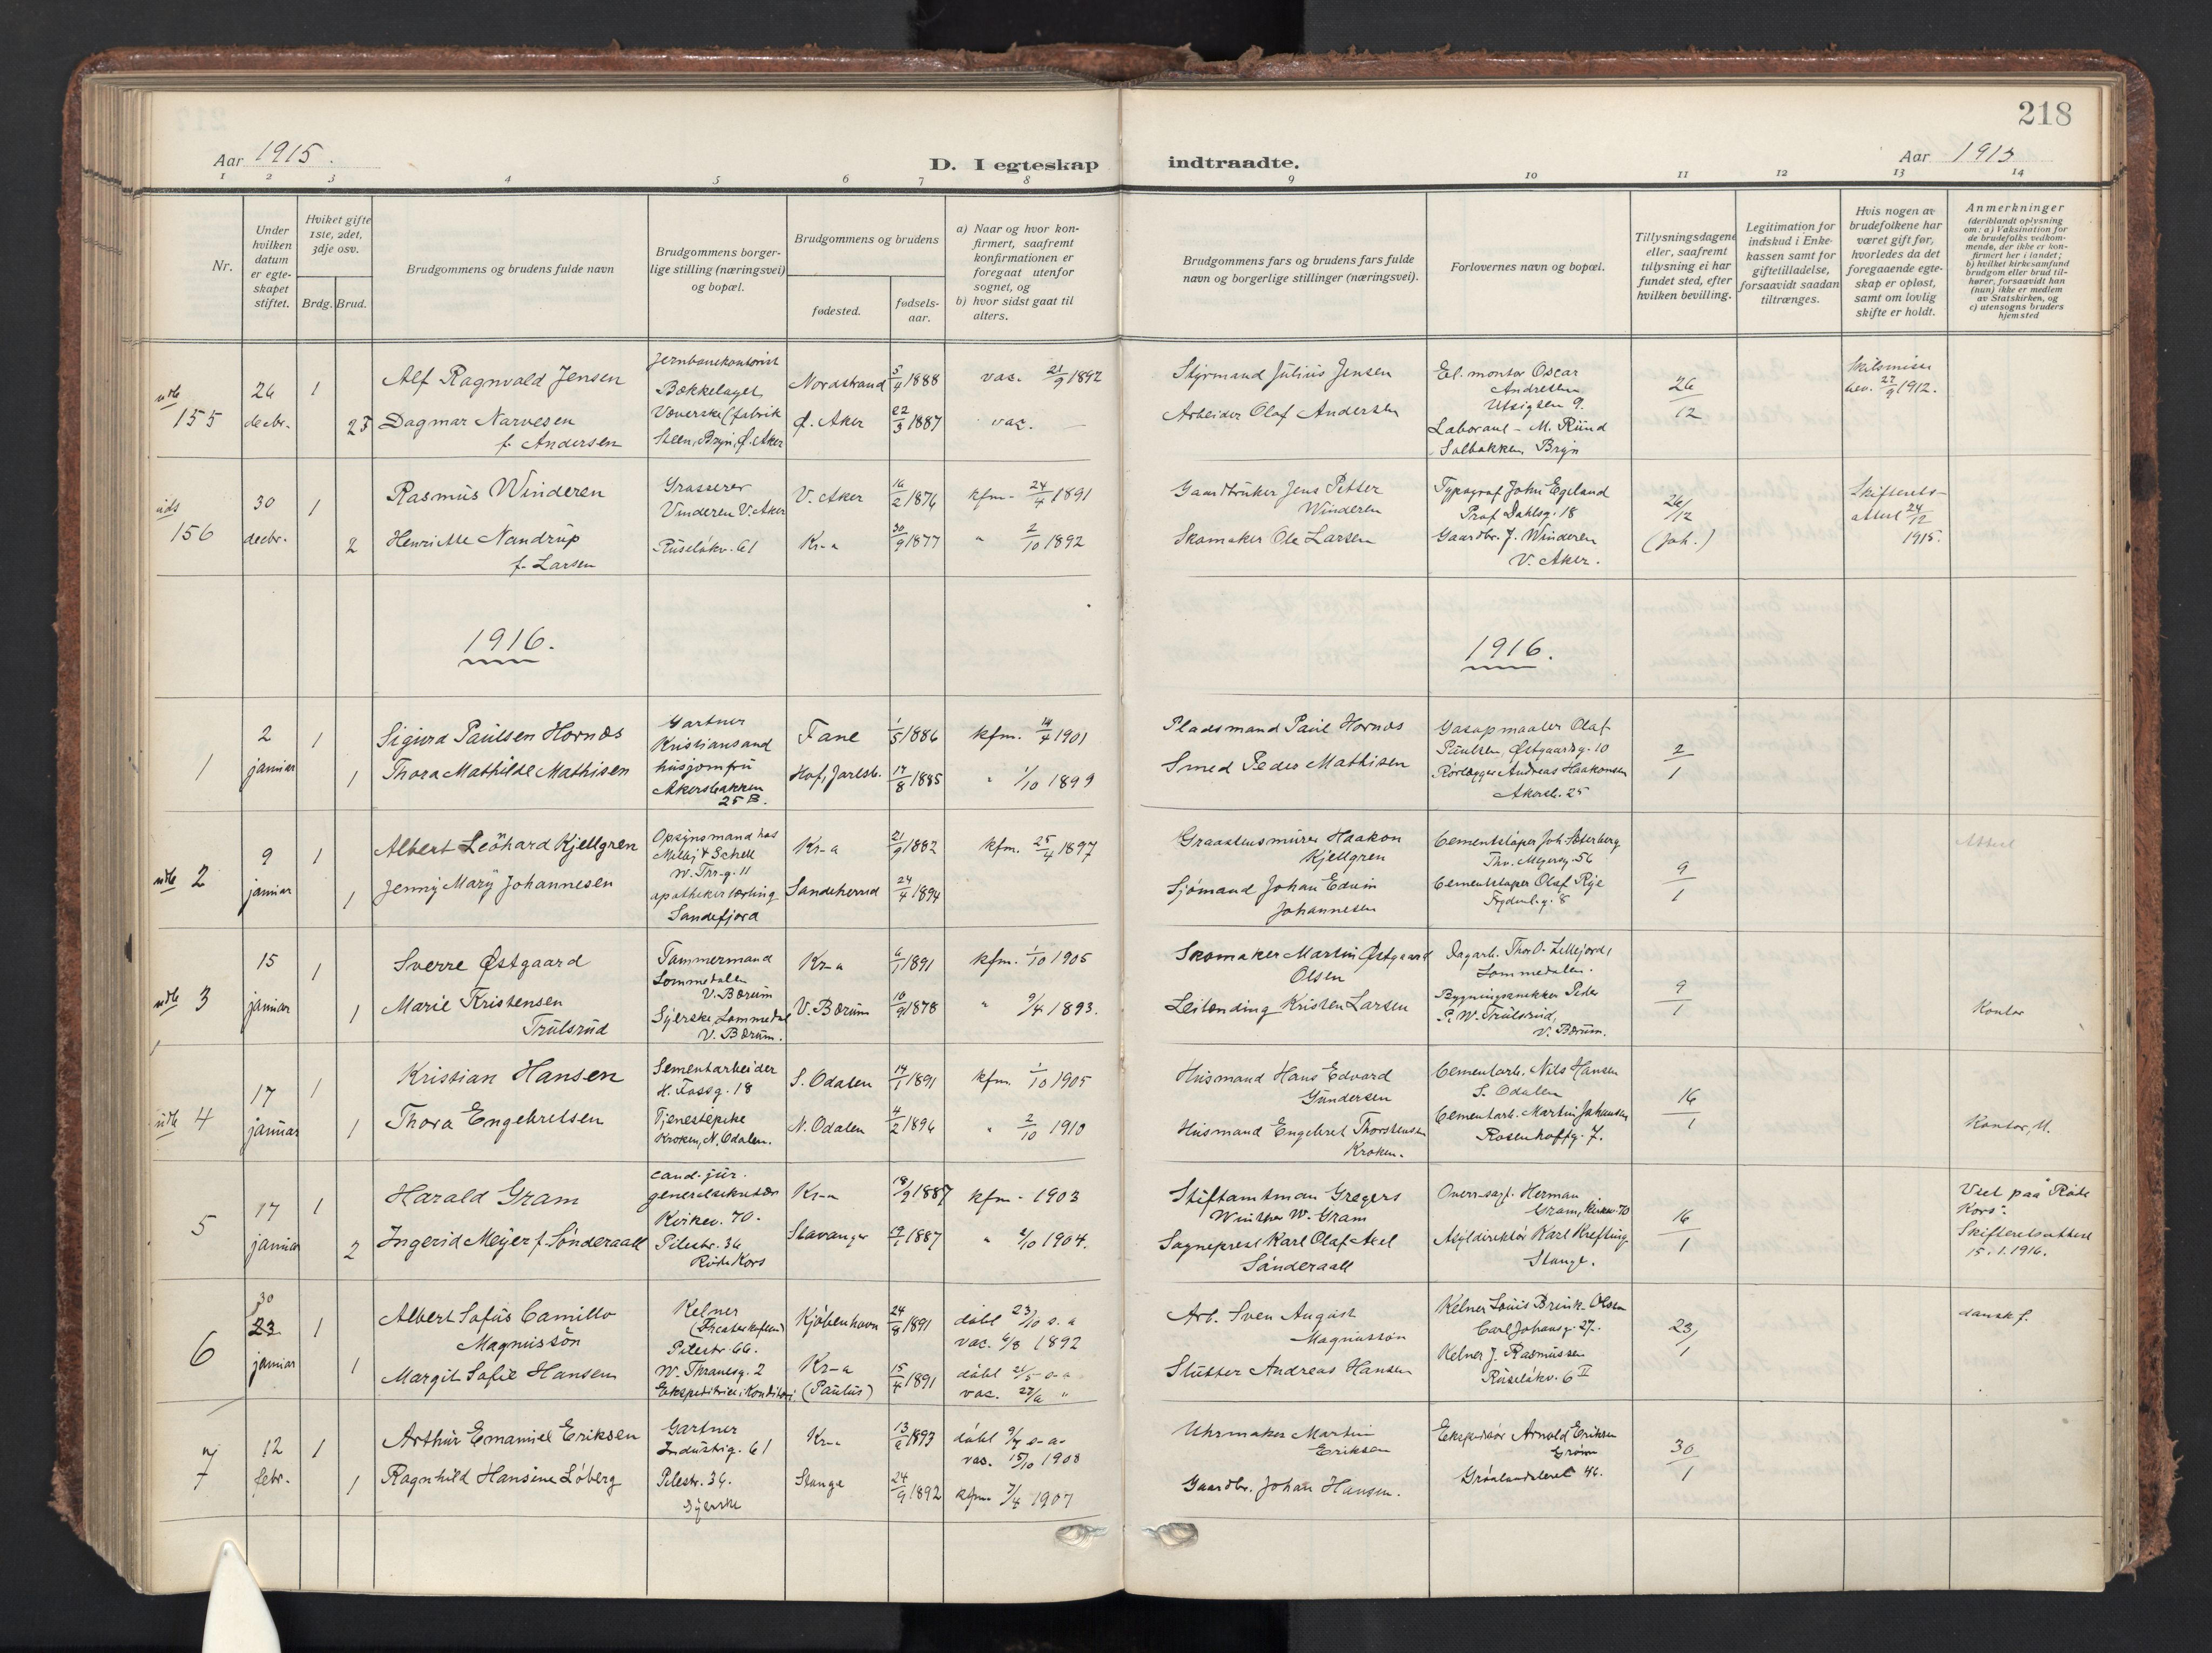 218
Aar 1915.
D. I egteskap
indtraadte.
Aar 1915
1 2 3 4 5 6 7 8 9 10 11 12 13 14
Nr.
Under hvilken datum er egteskapet stiftet.
Hvilket gifte 1ste, 2det, 3dje osv.
Brdg. Brud.
Brudgommens og brudens fulde navn
Brudgommens borgerlige stilling (næringsvei) og bopæl.
Brudgommens og brudens
fødested.
fødselsaar.
a) Naar og hvor konfirmert, saafremt konfirmationen er foregaat utenfor sognet, og
b) hvor sidst gaat til alters.
Brudgommens fars og brudens fars fulde navn og borgerlige stillinger (næringsvei).
Forlovernes navn og bopæl.
Tillysningsdagene eller, saafremt tillysning ei har fundet sted, efter hvilken bevilling.
Legitimation for indskud i Enkekassen samt for giftetilladelse, forsaavidt saadan tiltrænges.
Hvis nogen av brudefolkene har været gift før, hvorledes da det foregaaende egteskap er opløst, samt om lovlig skifte er holdt.
Anmerkninger
(deriblandt oplysning om: a) Vaksination for de brudefolks vedkommende, der ikke er konfirmert her i landet; b) hvilket kirkesamfund brudgom eller brud tilhører, forsaavidt han (hun) ikke er medlem av Statskirken, og c) utensogns bruders hjemsted
155
26 decbr.
1
Alf Ragnvald Jensen
Jernbanekontorist
Bækkelaget
Nordstrand
5/4 1888
vac. 21/9 1892
Styrmand Julius Jensen
El. montør Oscar
Andresen
Utsigten 9.
26/12
Skilsmisse
bev. 27/9 1912.
25
Dagmar Narvesen
f. Andersen
Væverske (fabrik
Steen, Bryn, Ø. Aker
Ø. Aker
22/3 1887
vac. —
Arbeider Olaf Andersen
Laborant - M. Ruud
Solbakken, Bryn
156
30 decbr.
1
Rasmus Winderen
Grosserer
Vinderen V. Aker
V. Aker
16/2 1876
kfm. 24/4 1891
Gaardbruker Jens Petter
Winderen
Typograf John Egeland
Prof. Dahlsg. 18
26/12
(Joh.)
Skifterets-
attest 24/12
1915.
2
Henriette Nandrup
f. Larsen
Ruseløkv. 61
Kr-a
30/9 1877
" 2/10 1892
Skomaker Ole Larsen
Gaardbr. J. Winderen
V. Aker.
1916.
1916.
1
2 januar
1
Sigurd Paulsen Hornæs
Gartner
Kristiansand
Fane
1/5 1886
kfm. 14/4 1901
Pladsmand Paul Hornæs
Gasopmaaler Olaf
Paulsen, Østgaardsg. 10
2/1
1
Thora Mathilde Mathisen
husjomfru
Akersbakken
25 B.
Hof, Jarlsb.
17/8 1885
" 1/10 1899
Smed Peder Mathisen
Rørlægger Andreas Haakonsen
Akersb. 25
2
9 januar
1
Albert Leonhard Kjellgren
Opsynsmand hos
W. Thr.g. 11
Kr-a
21/9 1882
kfm. 25/4 1897
Graastensmurer Haakon
Kjellgren
Cementstøper Joh. Søderberg
Thv. Meyersg. 56
9/1
Attest
1
Jenny Mary Johannesen
apothekerlærling
Sandefjord
Sandeherred
24/4 1894
Sjømand Johan Edvin
Johannesen
Cementstøper Olaf Rye
8
3
15 januar
1
Sverre Østgaard
Tømmermand
Lommedalen
V. Bærum
Kr-a
6/1 1891
kfm. 1/10 1905
Skomaker Martin Østgaard
Olsen
Dagarb. Thor O. Lillejord,
Lommedalen.
9/1
1
Marie Kristensen
Trulsrud
Syerske, Lommedal
V. Bærum.
V. Bærum
10/9 1878
" 9/4 1893.
Leilending Kristen Larsen
Bygningssnekker Peder
P. W. Trulsrud,
V. Bærum.
Kontor
4
17 januar
1
Kristian Hansen
Sementarbeider
H. Fossg. 18
S. Odalen
14/1 1891
kfm. 1/10 1905
Husmand Hans Edvard
Gundersen
Cementarb. Nils Hansen
S. Odalen
16/1
1
Thora Engebretsen
Tjenestepike
Kroken, N. Odalen.
N. Odalen
4/2 1896
" 2/10 1910
Husmand Engebret Thorstensen
Kroken.
Cementarb. Martin Johansen
Rosenhoffg. 7.
Kontor, U.
5
17 januar
1
Harald Gram
cand. jur.
generalsekretær
Kirkev. 70.
Kr-a
18/9 1887
kfm - 1903
Stiftamtman Gregers
Winther W. Gram
Overr.sagf. Herman
Gram, Kirkev. 70
16/1
Viet paa "Røde
Kors".
Skifteretsattest
15.1.1916.
2
Ingerid Meyer f. Sønderaall
Pilestr. 36
Røde Kors
Stavanger
19/1 1887
" 2/10 1904.
Sogneprest Karl Olaf Axel
Sønderaall
Asyldirektør Karl Krefting
Stange.
6
30
23 januar
1
Albert Sofus Camillo
Magnussön
Kelner
Pilestr. 66.
Kjøbenhavn
24/8 1891
døbt 23/10 s. a
vac. 6/8 1892
Arb. Sven August
Magnussön
Kelner Louis Brink-Olsen
Carl Johansg. 27.
23/1
dansk f.
1
Margit Sofie Hansen
W. Thranesg. 2
Ekspeditrice i Konditori
Kr-a
(Paulus)
15/4 1891
Slutter Andreas Hansen
Kelner J. Rasmussen
Ruseløkv. 6 II
7
12 febr.
1
Arthur Emanuel Eriksen
Gartner
Industrig. 61
Kr-a
1893
vac. 15/10 1908
Uhrmaker Martin
Eriksen
Ekspeditør Arnold Eriksen
30/1
1
Ragnhild Hansine Løberg
Pilestr. 36.
Syerske
Stange
24/9 1892
kfm. 7/4 1907
Gaardbr. Johan Hansen.
Grønlandsleret 46.